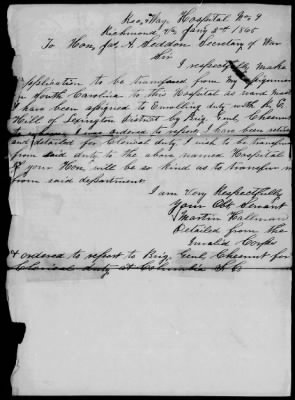 Rec, Way, Hospital No. 9
Richmond, Va Jany 2nd 1865
To Hon, Jas A. Seddon Secretary of War
Sir
I respectfully make
application to be transfered from my assignment
in South Carolina to this Hospital as ward mas
I have been assigned to Enrolling duty with
Hill of Lexington District by Brig. Genl Chesnut
to whom I was ordered to report I have been
and detailed for Clerical duty. I wish to be transfer
from said duty to the above named Hospital
if your Hon, will be so kind as to transfer m
from said department
I am Very Respectfully
Your Obt Servant
Martin Hallman
Detailed from the
Invalid Corps
& ordered to report to Brig Genl Chesnut for
Clerical duty at Columbia S C